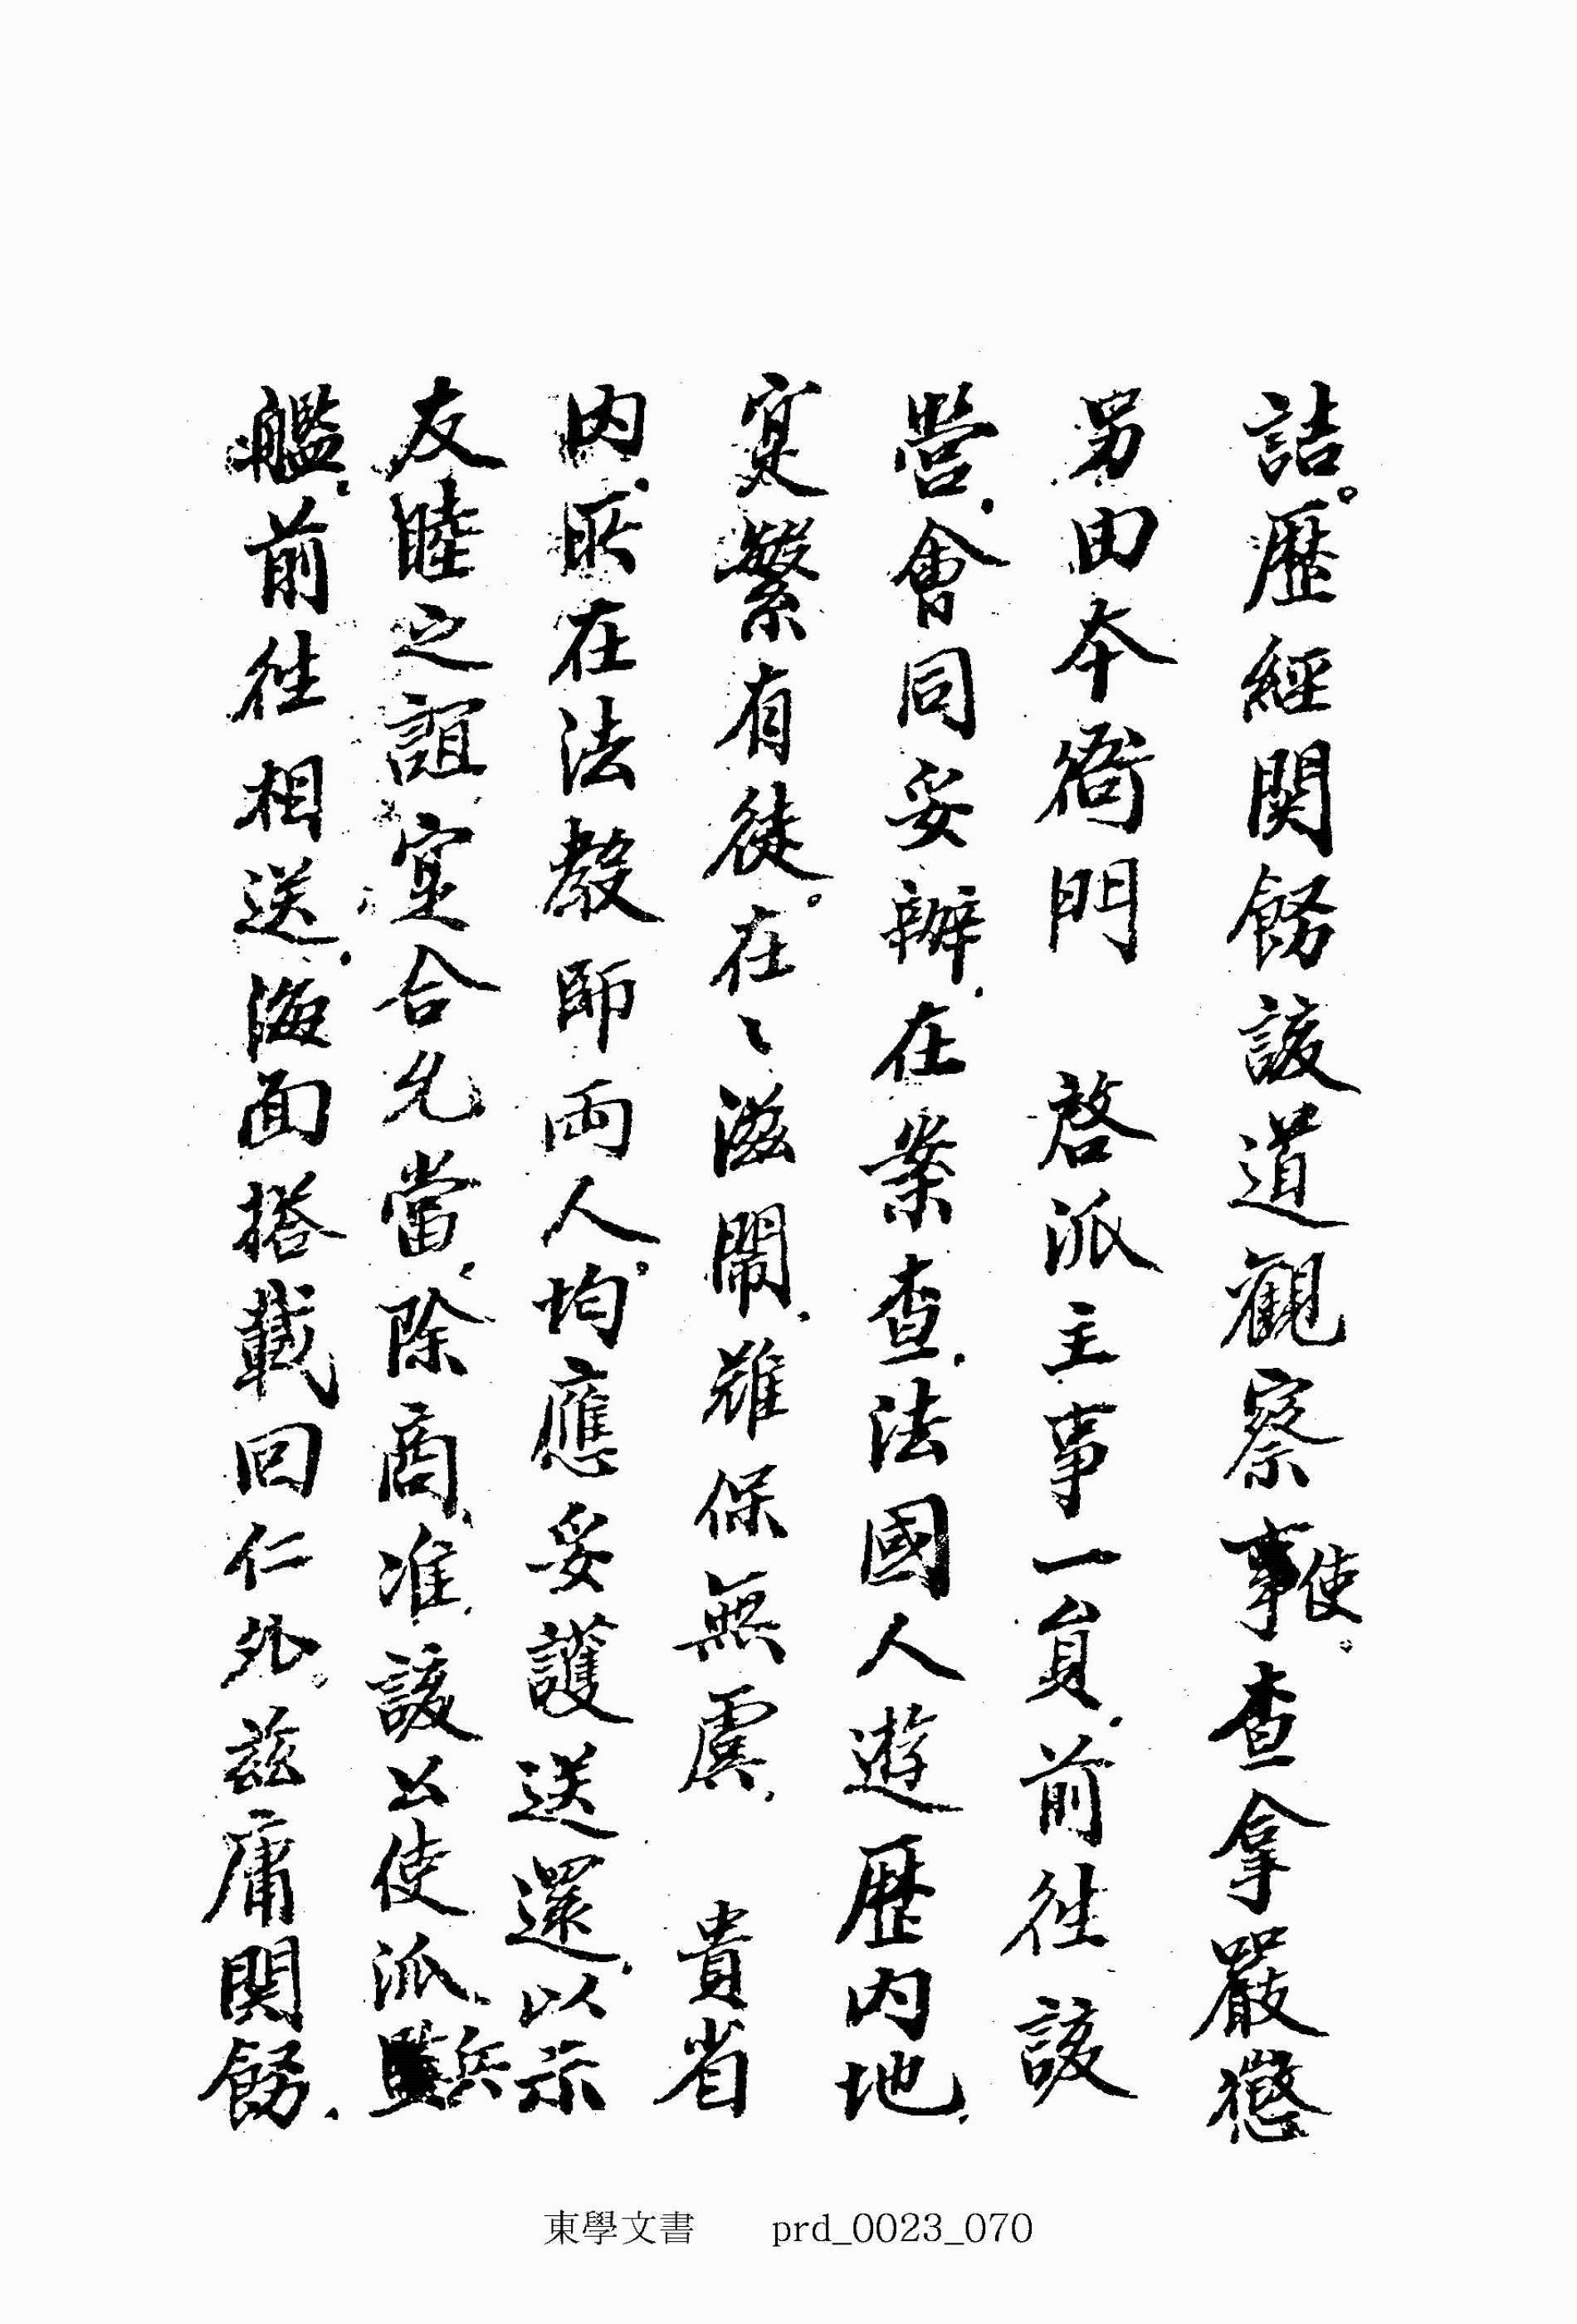 詰。歷經関飭該道觀察使。查拿嚴懲
另由本衙門　啓派主事一員、前往該
營、會同妥辦、在案、查、法國人遊歷内地、
寔繁有徒。在〻滋鬧、難保無虞、　貴省
内、所在法敎師両人。均應妥護送還、以示
友睦之誼、寔合允當、除商、准、該公使派、兵
艦、前往相送、海面搭載回仁外。茲庸関飭、
東學文書　prd_0023_070